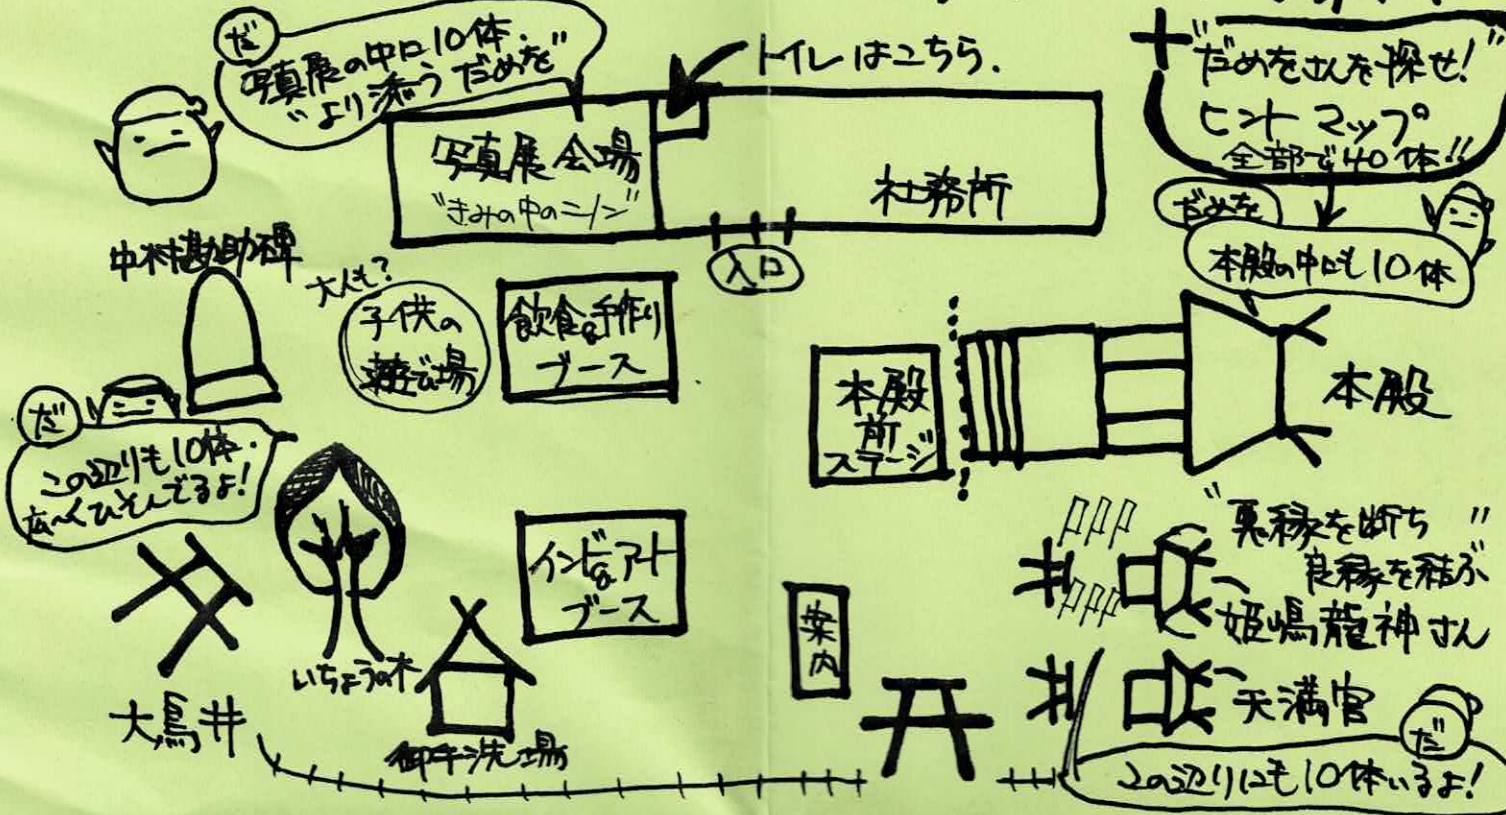 だ
写真展の中に10体.
"より添う だめを"
トイレはこちら.
"だめをさんを探せ!"
ヒントマップ
全部で40体!!
写真展会場
"きみの中のニノン"
社務所
入口
だめを
本殿の中にも10体
中村勘助碑
大人も?
子供の
遊び場
飲食&手作り
ブース
本殿
前
ステージ
本殿
だ
この辺りも10体.
広〜くひそんでるよ!
インド&アート
ブース
"悪縁を断ち
良縁を結ぶ"
姫嶋龍神さん
案内
いちょうの木
大鳥井
御手洗場
天満宮
だ
この辺りにも10体いるよ!